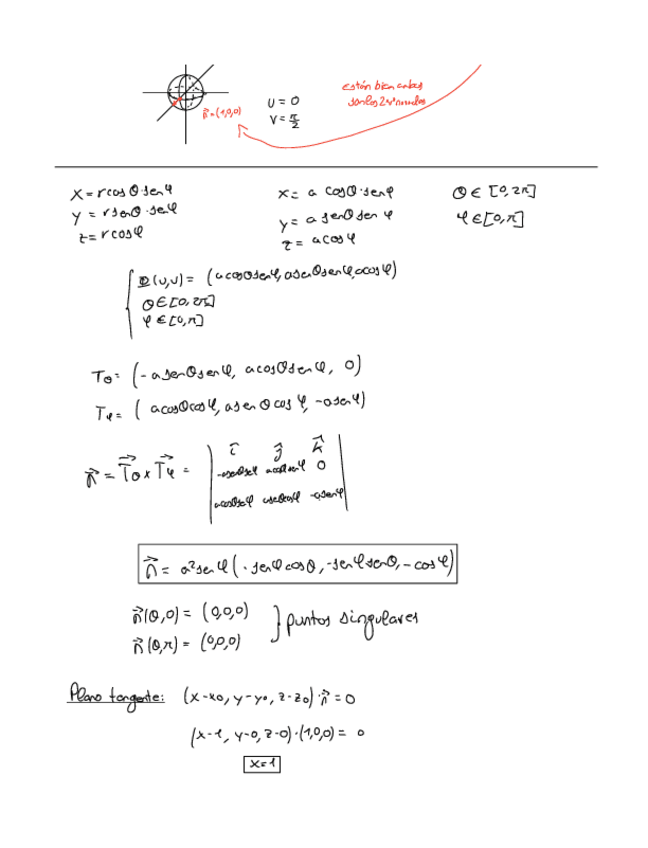 están bien ambas
son los 2 vínculos
n⃗=(1,0,0)
U = 0
V = π/2
x = r cos θ · sen φ
y = r sen θ · sen φ
z = r cos φ
x = a cos θ · sen φ
y = a sen θ sen φ
z = a cos φ
θ ∈ [0, 2π]
φ ∈ [0, π]
Φ(u,v) = (a cos θ sen φ, a sen θ sen φ, a cos φ)
θ ∈ [0, 2π]
φ ∈ [0, π]
Tθ = (- a sen θ sen φ, a cos θ sen φ, 0)
Tφ = ( a cos θ cos φ, a sen θ cos φ, -a sen φ)
n⃗ = T⃗θ x T⃗φ =
i⃗ j⃗ k⃗
-a sen θ sen φ a cos θ sen φ 0
a cos θ cos φ a sen θ cos φ -a sen φ
n⃗ = a² sen φ (- sen φ cos θ, - sen φ sen θ, - cos φ)
n⃗ (θ,0) = (0,0,0)
n⃗ (θ,π) = (0,0,0)
} puntos singulares
Plano tangente: (x-x₀, y-y₀, z-z₀) · n⃗ = 0
(x-1, y-0, z-0) · (1,0,0) = 0
x=1